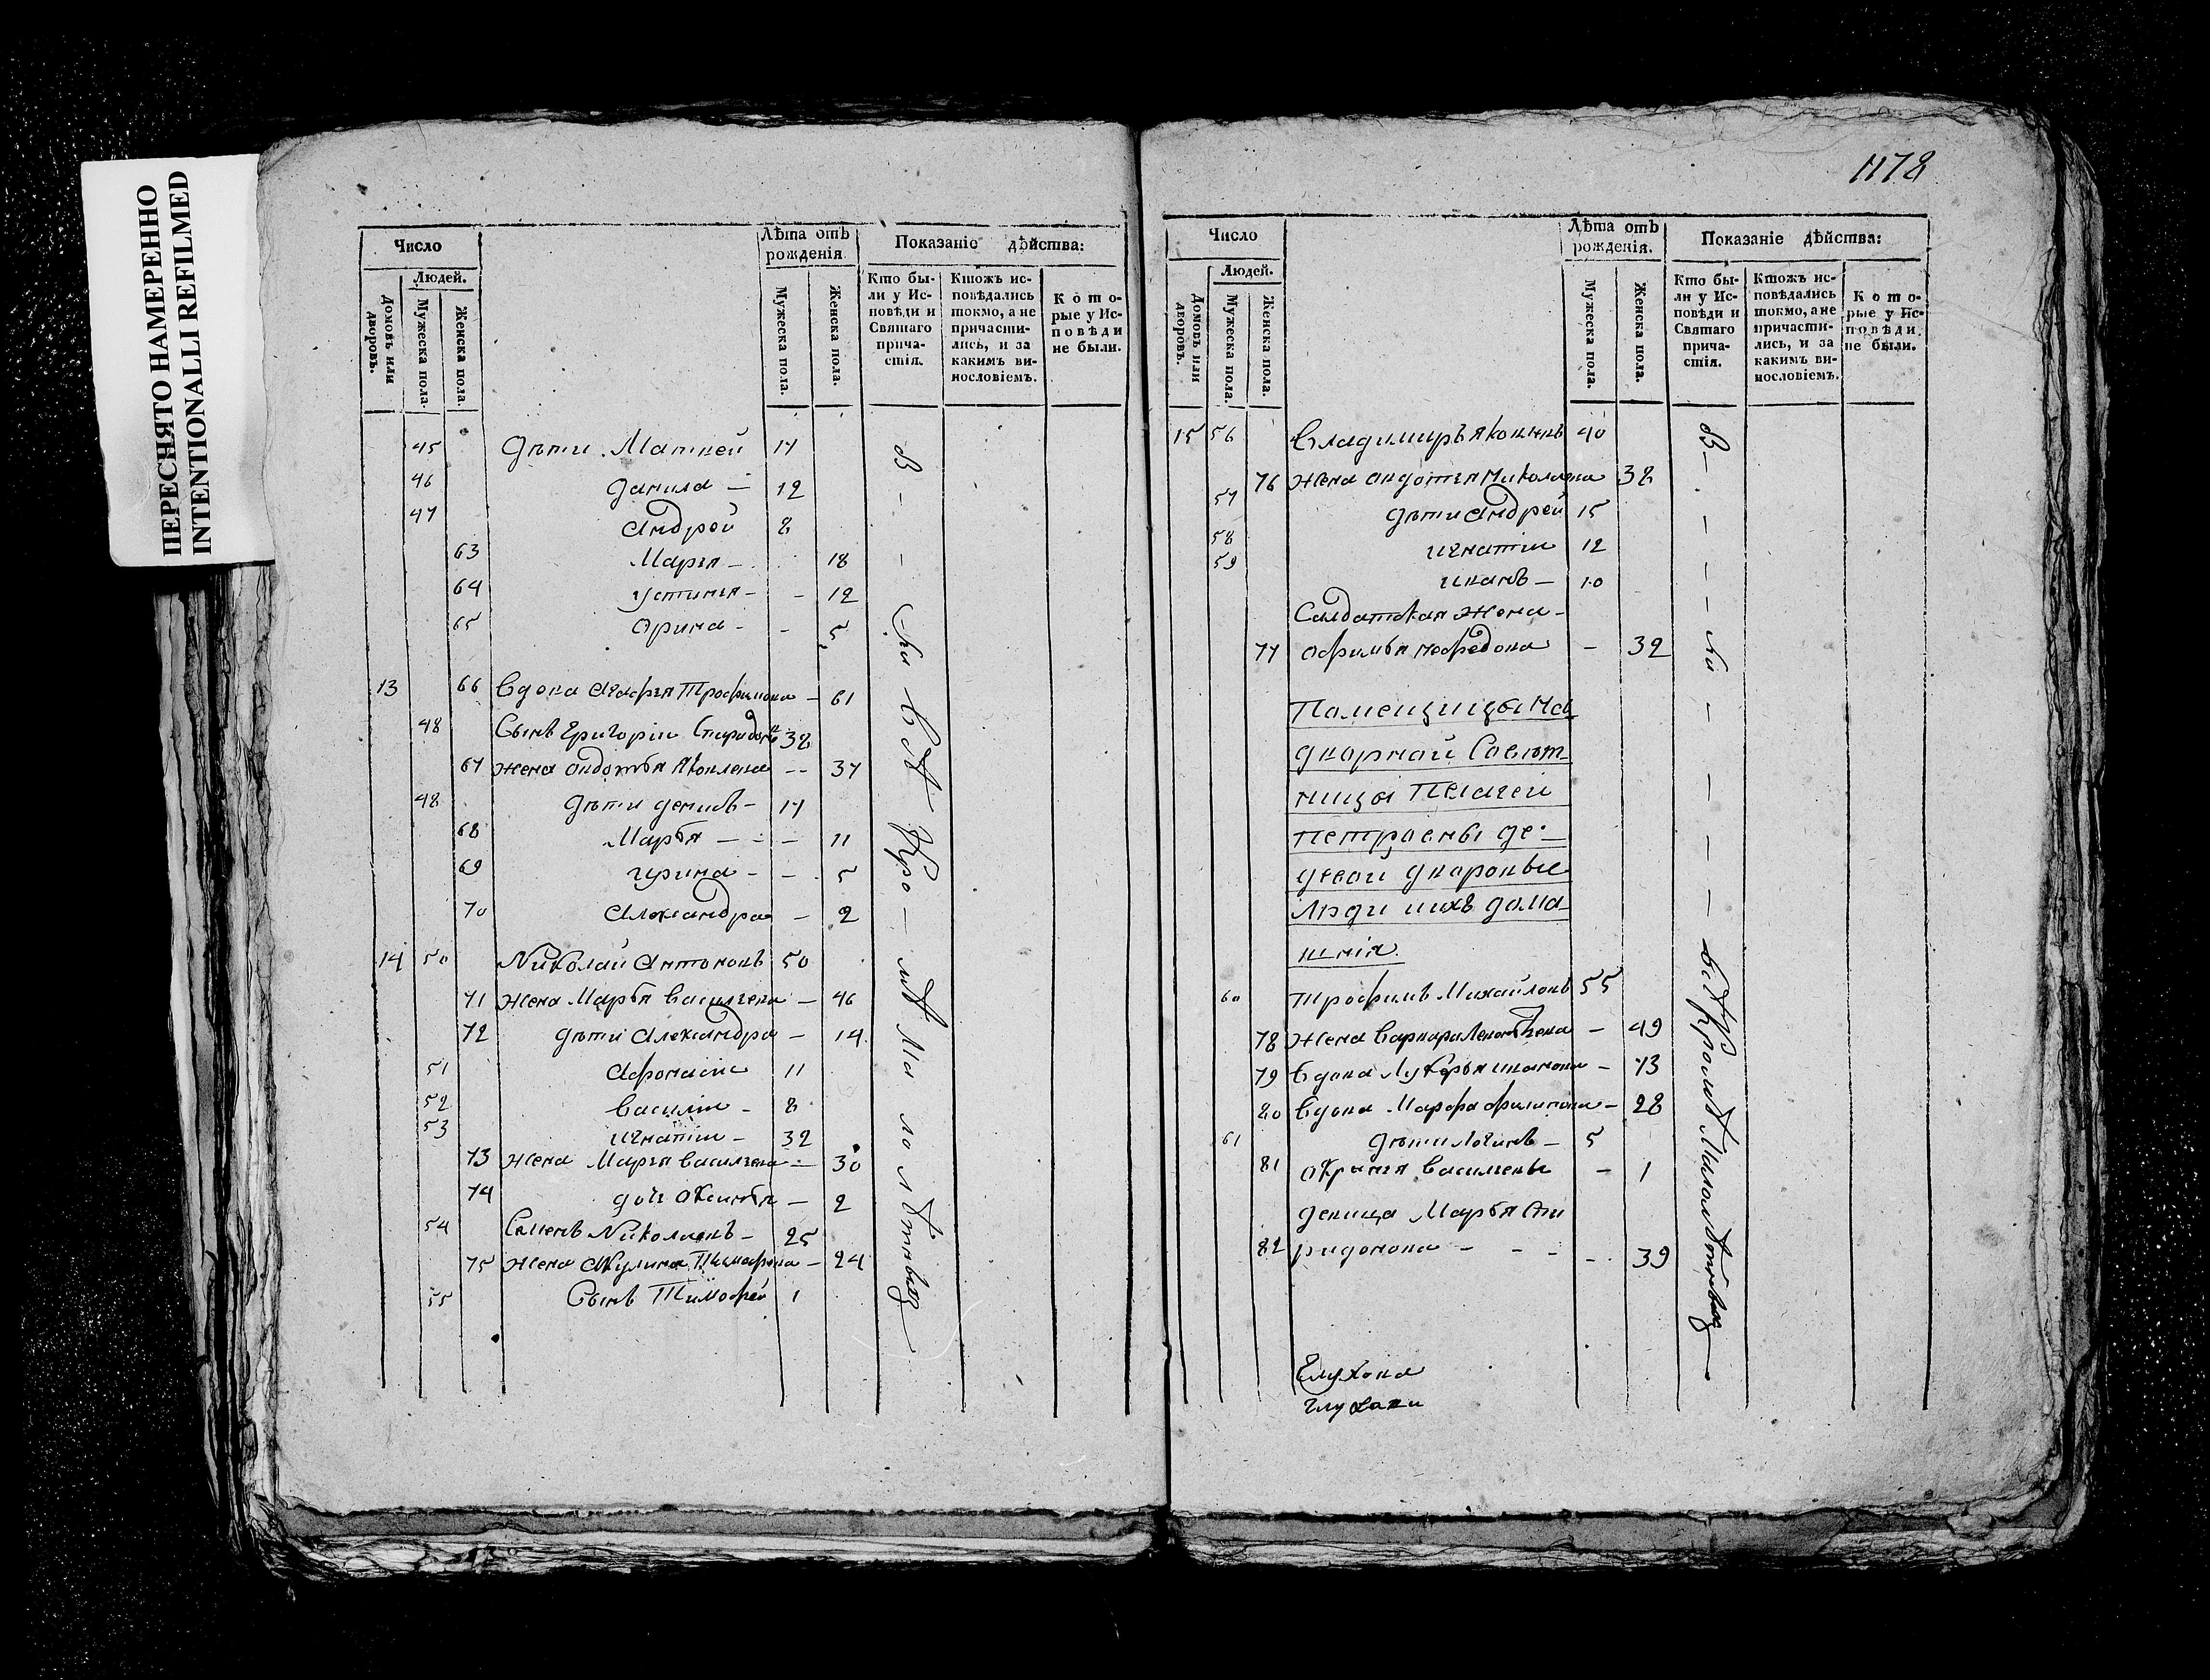 ПЕРЕСНЯТО НАМЕРЕННО
INTENTIONALLI REFILMED
1178
Число
Людей.
Домовъ или дворовъ.
Мужеска пола.
Женска пола.
Лѣта отъ рожденія.
Мужеска пола.
Женска пола.
Показаніе дѣйства:
Кто были у Исповѣди и Святаго причастія.
Ктожъ исповѣдались токмо, а не причастились, и за какимъ винословіемъ.
Которые у Исповѣди не были.
45 Дѣти Матвей 17
46 Данила — 12
47 Андрей 8
63 Марья — 18
64 Устинья — - 12
65 Орина - - 5
13 66 Вдова Агафья Трофимова — 61
48 Сынъ Григории Спиридонъ 38
67 Жена Авдотья Яковлева -- 37
48 Дѣти Денисъ — 17
68 Марья — - — 11
69 Ирина - - 5
70 Александра — 2
14 50 Николай Антоновъ 50
71 Жена Марья Василева — 46
72 дѣти Александра — 14
51 Афонасии 11
52 Василии - 8
53 Игнатии - 32
73 Жена Марья Василева — 30
74 доч Оксинья — 2
54 Семенъ Николаевъ — 25
75 Жена Акулина Тимофева — 24
55 Сынъ Тимофей 1
В - - - Си Всѣ Кро - мѣ Ма ло лѣтныхъ
Число
Людей.
Домовъ или дворовъ.
Мужеска пола.
Женска пола.
Лѣта отъ рожденія.
Мужеска пола.
Женска пола.
Показаніе дѣйства:
Кто были у Исповѣди и Святаго причастія.
Ктожъ исповѣдались токмо, а не причастились, и за какимъ винословіемъ.
Которые у Исповѣди не были.
15 56 Владимиръ Яковлевъ 40
76 Жена Авдотья Николаева 38
57 Дѣти Андрей 15
58 Игнатии 12
59 Иванъ — 10
Салдатская Жена -
77 Офимья Мефедова - 32
Помещицы На
дворной Совѣт
ницы Пелагеи
Петровны Де-
девои Дворовые
Люди ихъ дома
шнія.
60 Трофимъ Михайловъ 55
78 Жена Варвара Леонтьева — 49
79 Вдова Лукерья Иванова — 73
80 Вдова Марфа Филипова — 28
61 Дѣти Логинъ — 5
81 Василевы — 1
82 девица Марья Спи
ридонова - - - - 39
Глухова